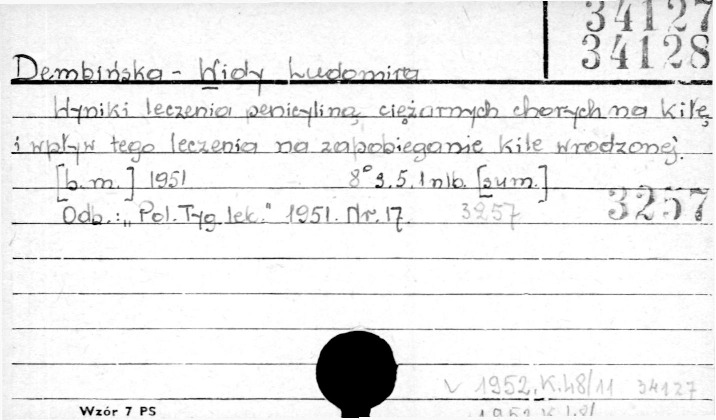 34127
34128
Dembińska - Widy Ludomira
Wyniki leczenia penicyliną ciężarnych chorych na kiłę
i wpływ tego leczenia na zapobieganie kile wrodzonej.
[b.m.] 1951 8° s. 5, 1 nlb. [sum.]
Odb.: „Pol. Tyg. lek." 1951. Nr. 17. 3257 3257
v 1952. K. 48/11 34127
Wzór 7 PS